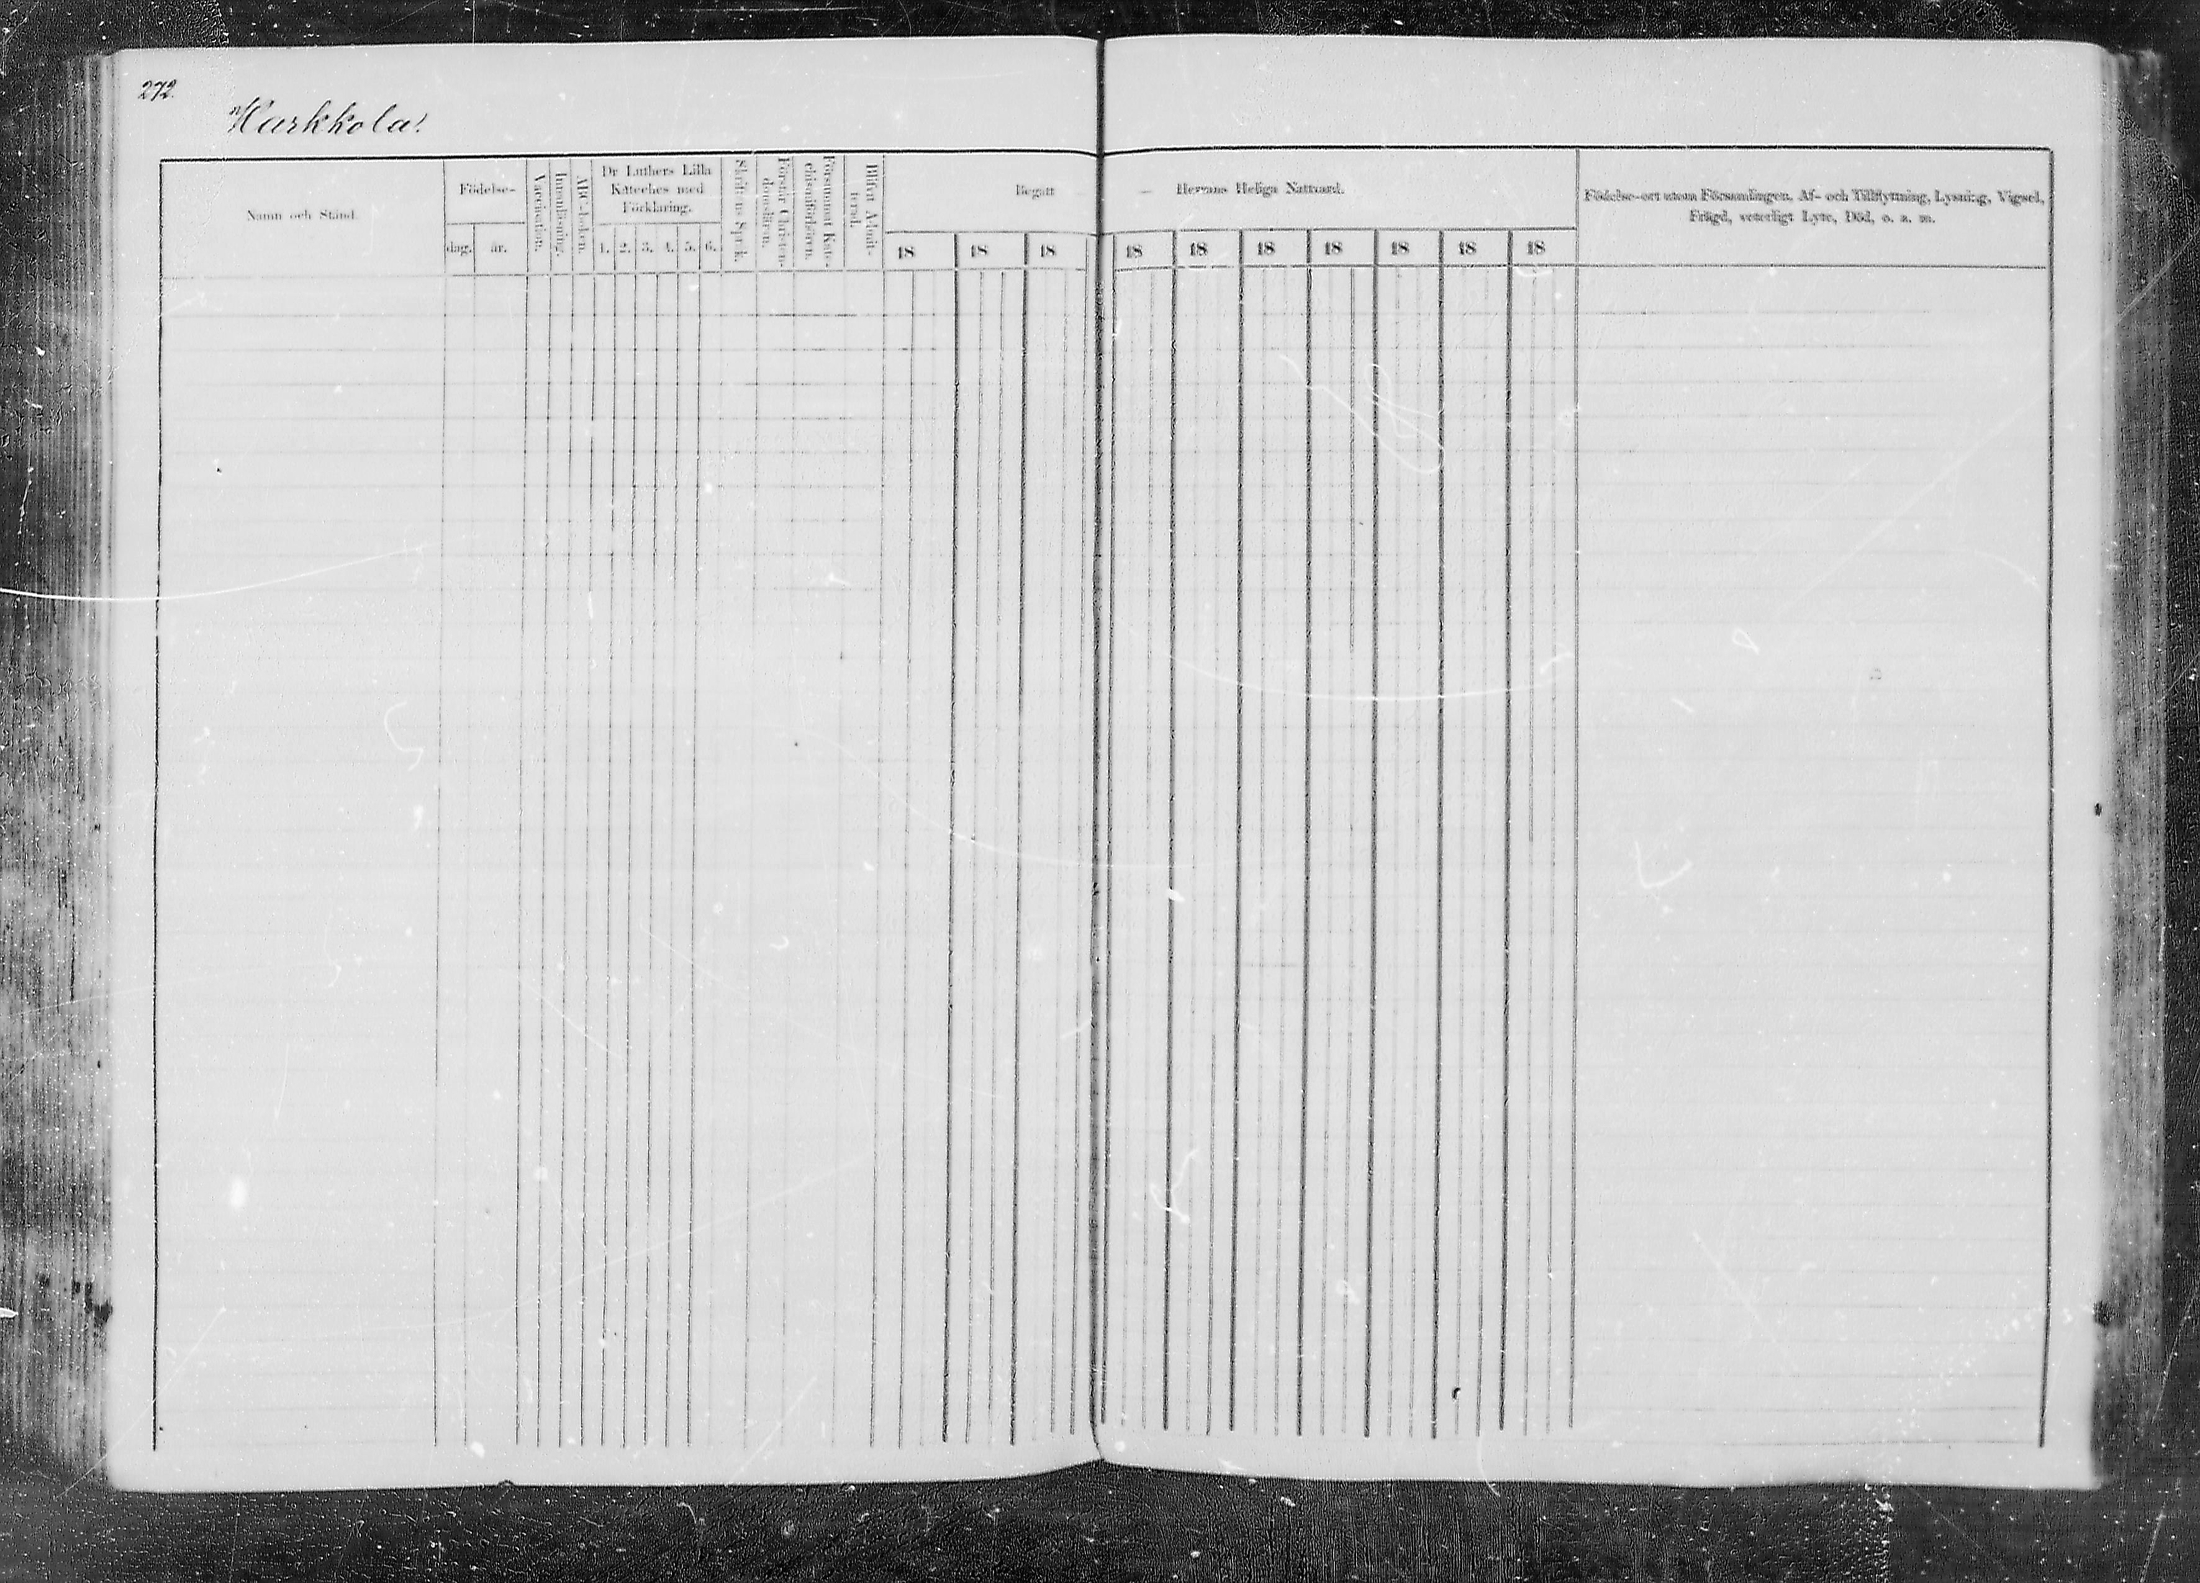 272.
Karkkola.
Namn och Stånd.
Födelse-
dag.
år.
Vaccination.
Innanläsning.
ABC-boken.
Dr Luthers Lilla
Kateches med
Förklaring.
1. 2. 3. 4. 5. 6.
Skriftens Språk.
Förstår Christen-
domsläran.
Försummat Kate-
chismiförhören.
Blifvit Admit-
terad.
Begått — Herrans Heliga Nattvard.
18 18 18 18 18 18 18 18 18 18
Födelse-ort utom Församlingen, Af- och Tillflyttning, Lysning, Vigsel,
Frägd, veterligt Lyte, Död, o. s. m.